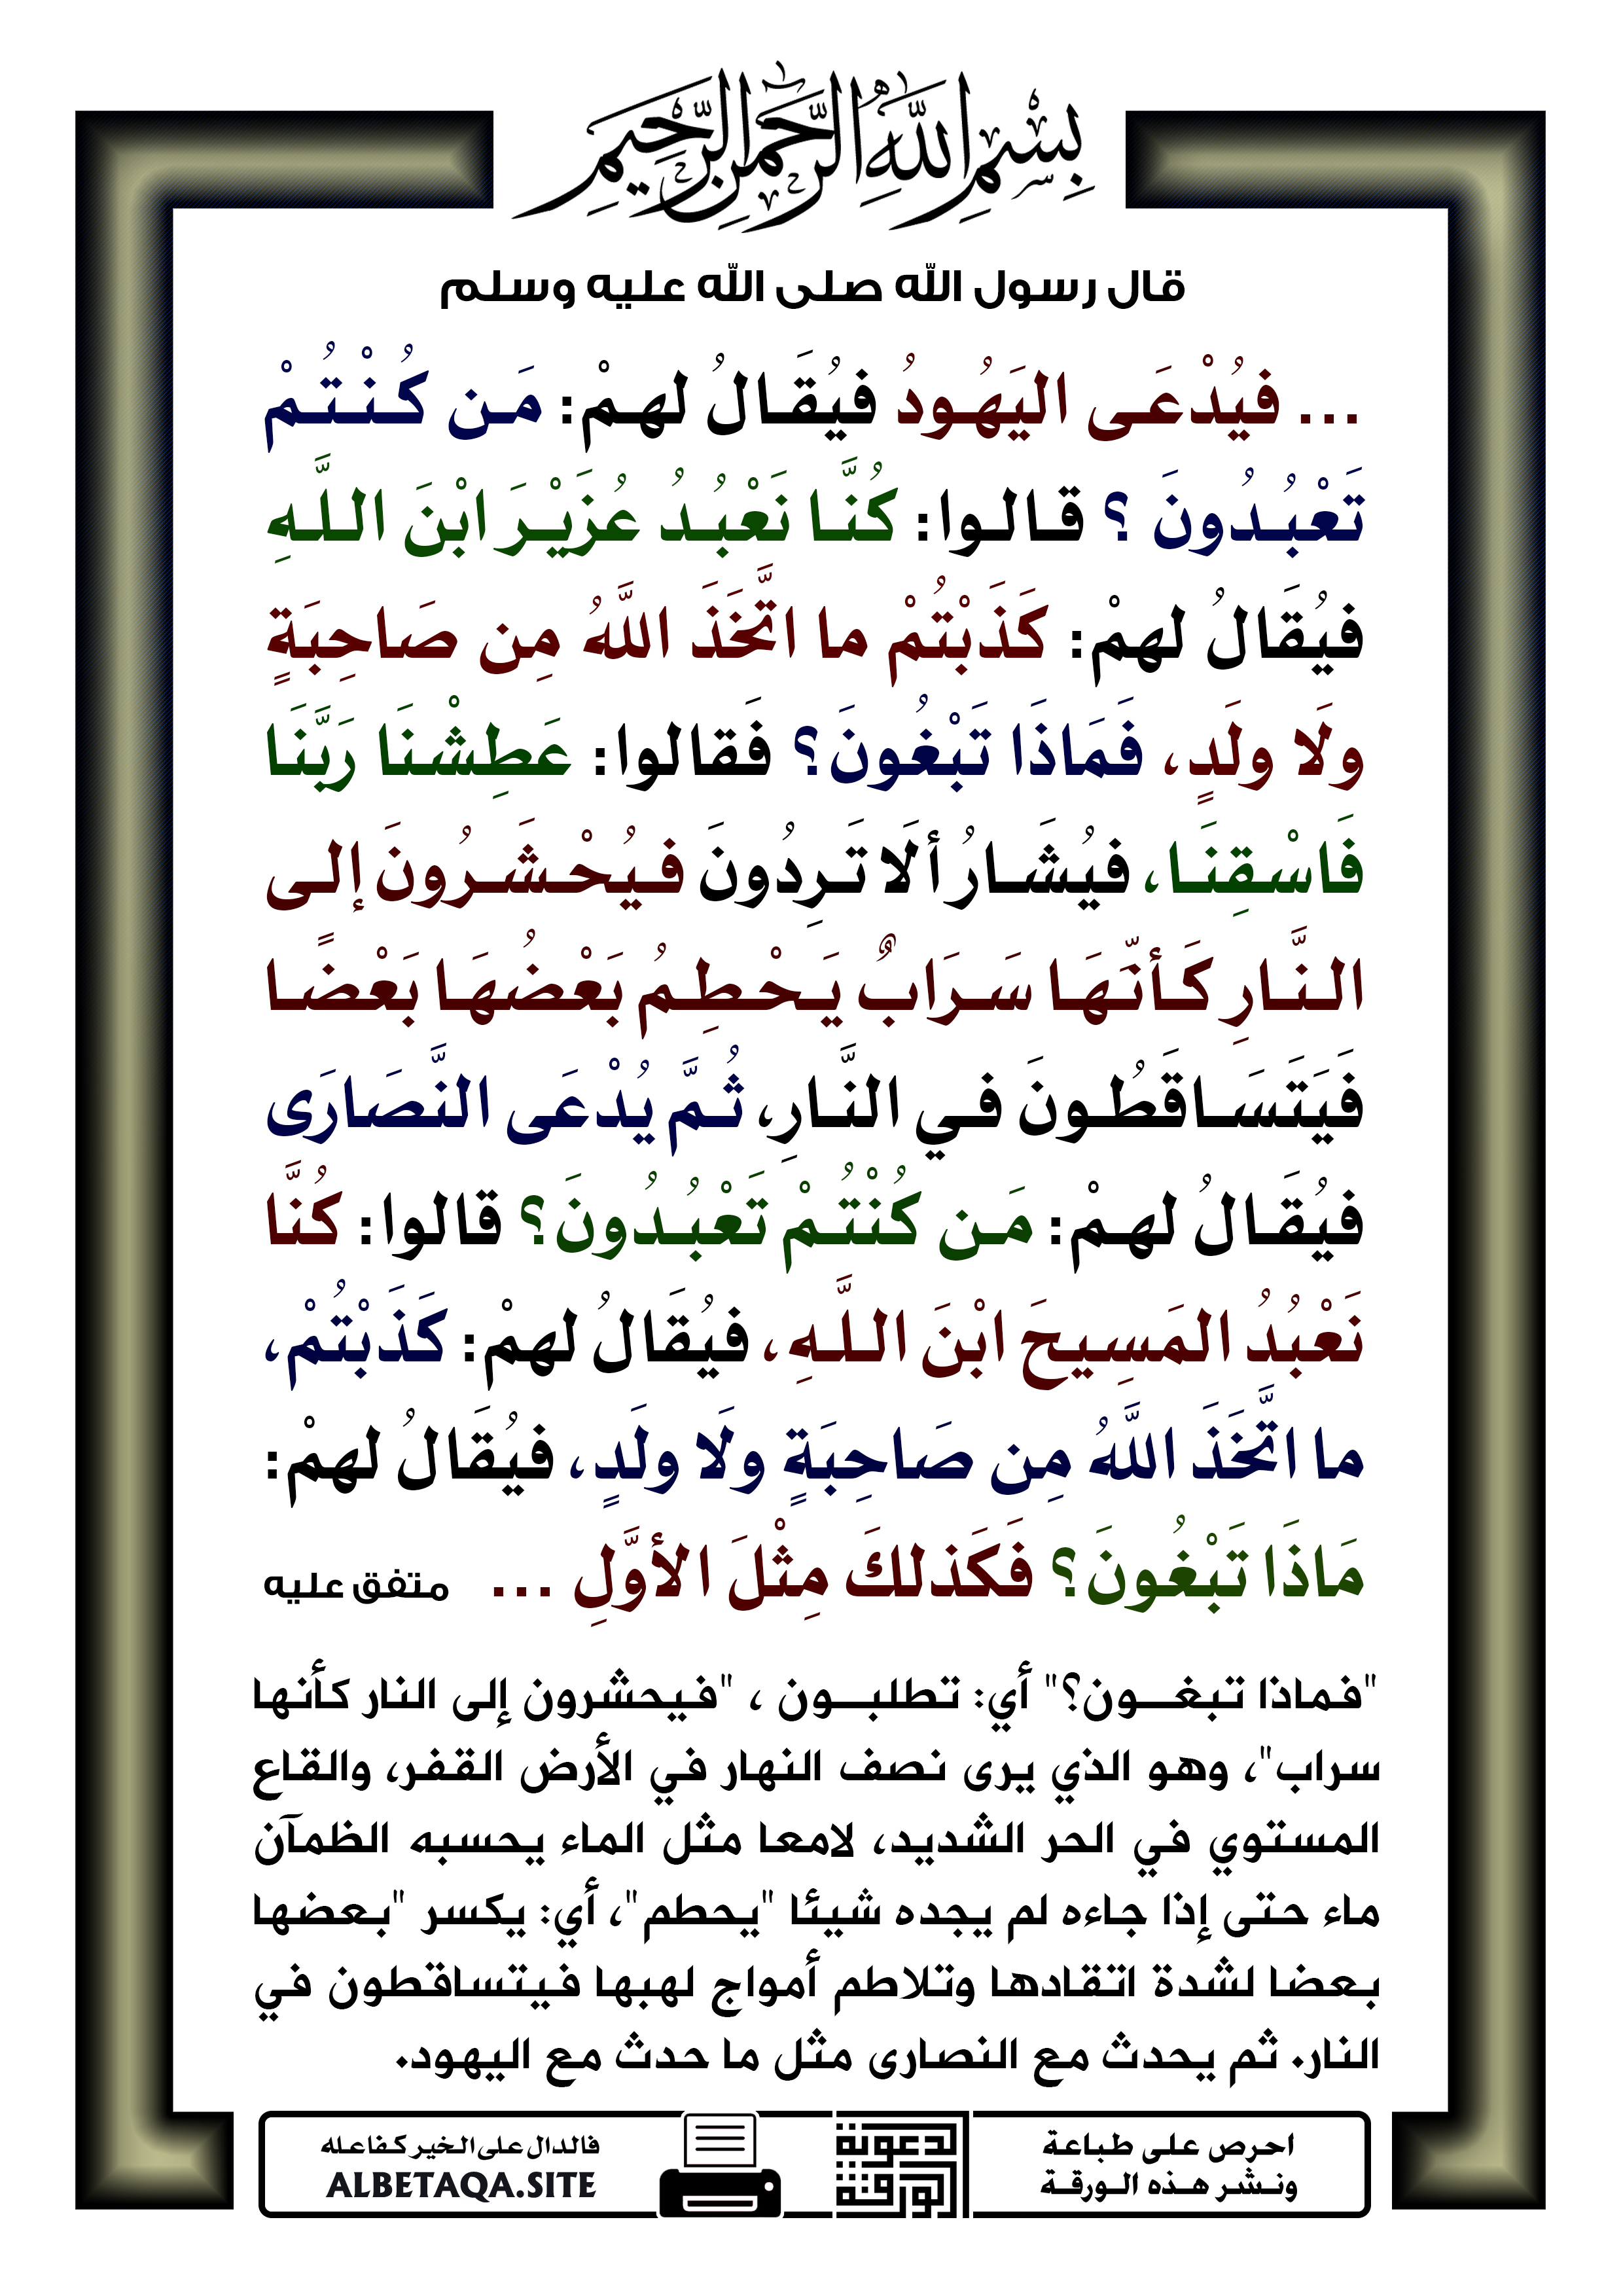 بِسْمِ اللَّهِ الرَّحْمَنِ الرَّحِيمِ
قال رسول الله صلى الله عليه وسلم
... فيُدْعَى اليَهُودُ فيُقَالُ لهمْ: مَن كُنْتُمْ
تَعْبُدُونَ ؟ قالوا: كُنَّا نَعْبُدُ عُزَيْرَ ابْنَ اللَّهِ
فيُقَالُ لهمْ: كَذَبْتُمْ ما اتَّخَذَ اللَّهُ مِن صَاحِبَةٍ
ولَا ولَدٍ، فَمَاذَا تَبْغُونَ؟ فَقالوا: عَطِشْنَا رَبَّنَا
فَاسْقِنَا، فيُشَارُ ألَا تَرِدُونَ فيُحْشَرُونَ إلى
النَّارِ كَأنَّهَا سَرَابٌ يَحْطِمُ بَعْضُهَا بَعْضًا
فَيَتَسَاقَطُونَ في النَّارِ، ثُمَّ يُدْعَى النَّصَارَى
فيُقَالُ لهمْ: مَن كُنْتُمْ تَعْبُدُونَ؟ قالوا: كُنَّا
نَعْبُدُ المَسِيحَ ابْنَ اللَّهِ، فيُقَالُ لهمْ: كَذَبْتُمْ،
ما اتَّخَذَ اللَّهُ مِن صَاحِبَةٍ ولَا ولَدٍ، فيُقَالُ لهمْ:
مَاذَا تَبْغُونَ؟ فَكَذلكَ مِثْلَ الأوَّلِ ... متفق عليه
"فماذا تبغون؟" أي: تطلبون ، "فيحشرون إلى النار كأنها
سراب"، وهو الذي يرى نصف النهار في الأرض القفر، والقاع
المستوي في الحر الشديد، لامعا مثل الماء يحسبه الظمآن
ماء حتى إذا جاءه لم يجده شيئا "يحطم"، أي: يكسر "بعضها
بعضا لشدة اتقادها وتلاطم أمواج لهبها فيتساقطون في
النار. ثم يحدث مع النصارى مثل ما حدث مع اليهود.
احرص على طباعة
ونشر هذه الورقة
الورقة
الدعوية
فالدال على الخير كفاعله
ALBETAQA.SITE